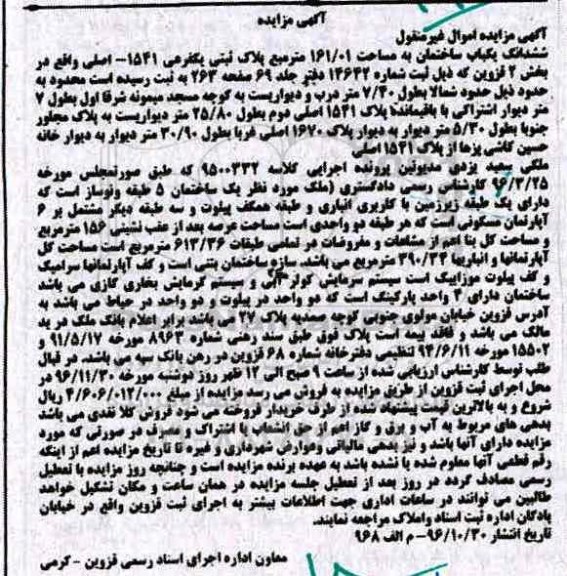 آگهی مزایده
آگهی مزایده اموال غیرمنقول
ششدانگ یکباب ساختمان به مساحت ۱۶۱/۰۱ مترمربع پلاک ثبتی یکفرعی ۱۵۴۱- اصلی واقع در
بخش ۲ قزوین که ذیل ثبت شماره ۱۳۶۴۲ دفتر جلد ۶۹ صفحه ۲۶۳ به ثبت رسیده است محدود به
حدود ذیل حدود شمالا بطول ۷/۴۰ متر درب و دیواریست به کوچه مسجد میمونه شرقا اول بطول ۷
متر دیوار اشتراکی با باقیمانده پلاک ۱۵۴۱ اصلی دوم بطول ۲۵/۸۰ متر دیواریست به پلاک مجاور
جنوبا بطول ۵/۳۰ متر دیوار به دیوار پلاک ۱۶۷۰ اصلی غربا بطول ۳۰/۹۰ متر دیوار به دیوار خانه
حسین کاشی پزها از پلاک ۱۵۴۱ اصلی
ملکی سعید یزدی مدیونین پرونده اجرایی کلاسه ۹۵۰۰۳۳۲ که طبق صورتمجلس مورخه
۹۶/۳/۲۵ کارشناس رسمی دادگستری (ملک مورد نظر یک ساختمان ۵ طبقه ونوساز است که
دارای یک طبقه زیرزمین با کاربری انباری و طبقه همکف پیلوت و سه طبقه دیگر مشتمل بر ۶
آپارتمان مسکونی است که هر طبقه دو واحدی است مساحت عرصه بعد از عقب نشینی ۱۵۶ مترمربع
و مساحت کل بنا اعم از مشاعات و مفروضات در تمامی طبقات ۶۱۳/۳۶ مترمربع است مساحت کل
آپارتمانها و انباریها ۳۹۰/۳۴ مترمربع می باشد. سازه ساختمان بتنی است و کف آپارتمانها سرامیک
و کف پیلوت موزاییک است سیستم سرمایش کولر آبی و سیستم گرمایش بخاری گازی می باشد
ساختمان دارای ۴ واحد پارکینگ است که دو واحد در پیلوت و دو واحد در حیاط می باشد به
آدرس قزوین خیابان مولوی جنوبی کوچه صمدیه پلاک ۲۷ می باشد برابر اعلام بانک ملک در ید
مالک می باشد و فاقد بیمه است پلاک فوق طبق سند رهنی شماره ۸۹۶۳ مورخه ۹۱/۵/۱۷ و
۱۵۵۰۲ مورخه ۹۴/۶/۱۱ تنظیمی دفترخانه شماره ۶۸ قزوین در رهن بانک سپه می باشد. در قبال
طلب توسط کارشناس ارزیابی شده از ساعت ۹ صبح الی ۱۲ ظهر روز دوشنبه مورخه ۹۶/۱۱/۳۰ در
محل اجرای ثبت قزوین از طریق مزایده به فروش می رسد مزایده از مبلغ ۴/۶۰۶/۰۱۲/۰۰۰ ریال
شروع و به بالاترین قیمت پیشنهاد شده از طرف خریدار فروخته می شود فروش کلا نقدی می باشد
بدهی های مربوط به آب و برق و گاز اعم از حق انشعاب یا اشتراک و مصرف در صورتی که مورد
مزایده دارای آنها باشد و نیز بدهی مالیاتی وعوارض شهرداری و غیره تا تاریخ مزایده اعم از اینکه
رقم قطعی آنها معلوم شده یا نشده باشد به عهده برنده مزایده است و چنانچه روز مزایده با تعطیل
رسمی مصادف گردد در روز بعد از تعطیل جلسه مزایده در همان ساعت و مکان تشکیل خواهد
طالبین می توانند در ساعات اداری جهت اطلاعات بیشتر به اجرای ثبت قزوین واقع در خیابان
پادگان اداره ثبت اسناد واملاک مراجعه نمایند.
تاریخ انتشار ۹۶/۱۰/۳۰- م الف ۹۶۸
معاون اداره اجرای اسناد رسمی قزوین -کرمی